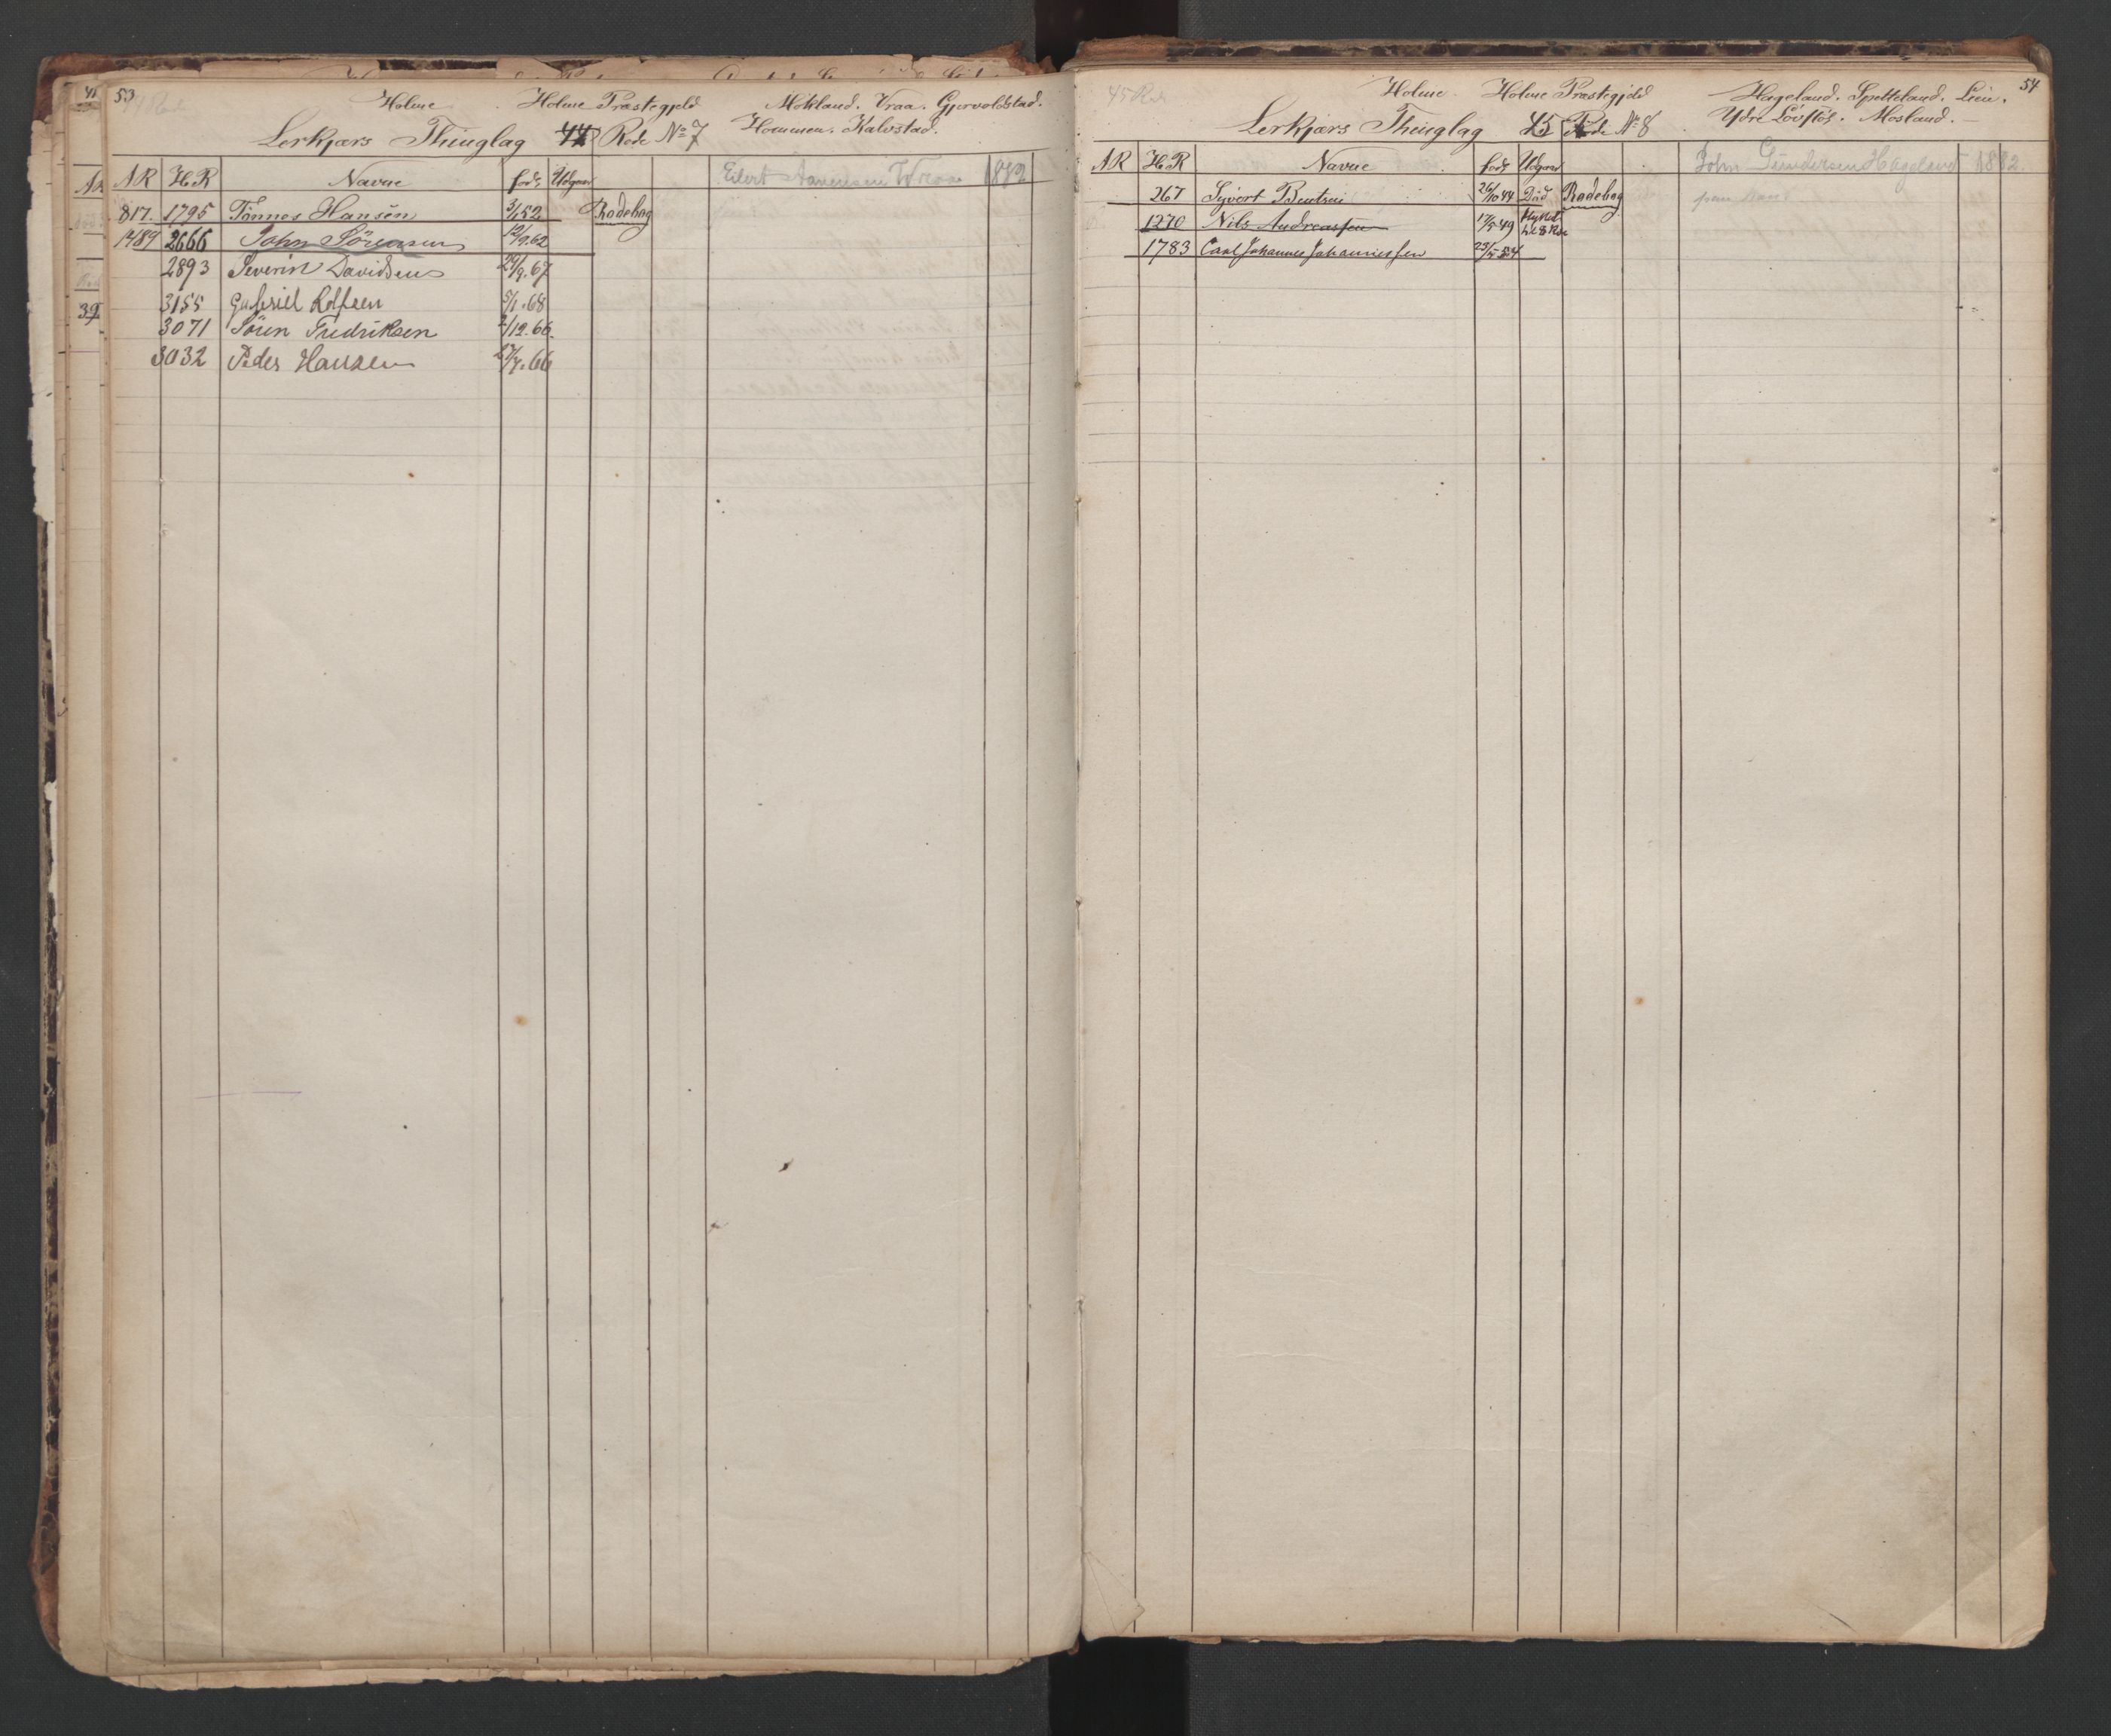 53
44 Rode
Holme Holme Præstegjeld Mikland. Vraa. Gjervoldstad.
Lerkjærs Thinglag 44 Rode No 7 Hommen. Kalvstad.
AR HR Navne født Udgaaet Eilert Vraa 1882
817. 1795 Tønnes Hansen 3/1 52 Rodebog
1489 2666 John Sörensen 12/9.62
2893 Severin Davidsen 24/9.67
3155 Gabriel Rolfsen 5/1.68
3071 Sören Fredriksen 2/12.66
3032 Peder Hansen 27/7.66
41
AR
39
54
45 Rode
Holme Holme Præstegjeld Hageland. Spetteland. Lien.
Lerkjærs Thinglag 45 Rode No 8 Ydre Lövstöl. Mosland.
AR HR Navne født Udgaaet John Gundersen Hageland 1882.
267 Syvert Bentsen 26/10 44 Död Rodebog
1270 Nils Andreassen 17/5 49 flyttet til 8 Rode
1783 Carl Johannes Johannessen 23/5 54